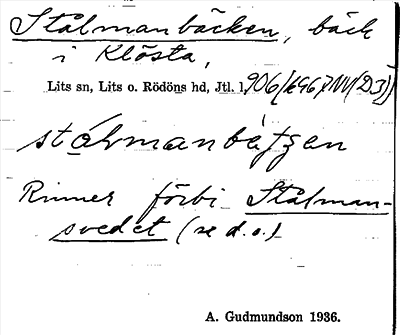 Stålmanbäcken, bäck
i Klösta,
Lits sn, Lits o. Rödöns hd, Jtl. l.
stålmanbätjen
Rinner förbi Stålman-
svedet (se d.o.)
A. Gudmundson 1936.